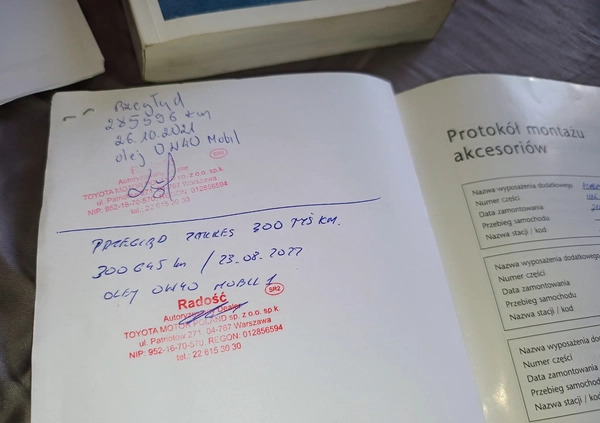 Przegląd
285996 km
26.10.2021
olej 0W40 Mobil
SR2
TOYOTA MOTOR POLAND sp. z o.o. sp.k
ul. Patriotów 271, 04-767 Warszawa
NIP: 952-16-70-570, REGON: 012856594
tel.: 22 615 30 30
PRZEGLĄD ZAKRES 300 TYŚ KM.
300645 km / 23.08.2022
OLEJ 0W40 MOBIL 1
Radość
SR2
Autoryzowany Dealer
TOYOTA MOTOR POLAND sp. z o.o. sp.k
ul. Patriotów 271, 04-767 Warszawa
NIP: 952-16-70-570, REGON: 012856594
tel.: 22 615 30 30
Protokół montażu
akcesoriów
Nazwa wyposażenia dodatkowego
Numer części
Data zamontowania
Przebieg samochodu
Nazwa stacji / kod
Nazwa wyposażenia dodatkowego
Numer części
Data zamontowania
Przebieg samochodu
Nazwa stacji / kod
Nazwa wyposażenia do
Numer części
Data zamontowania
Przebieg samochod
Nazwa stacji / kod